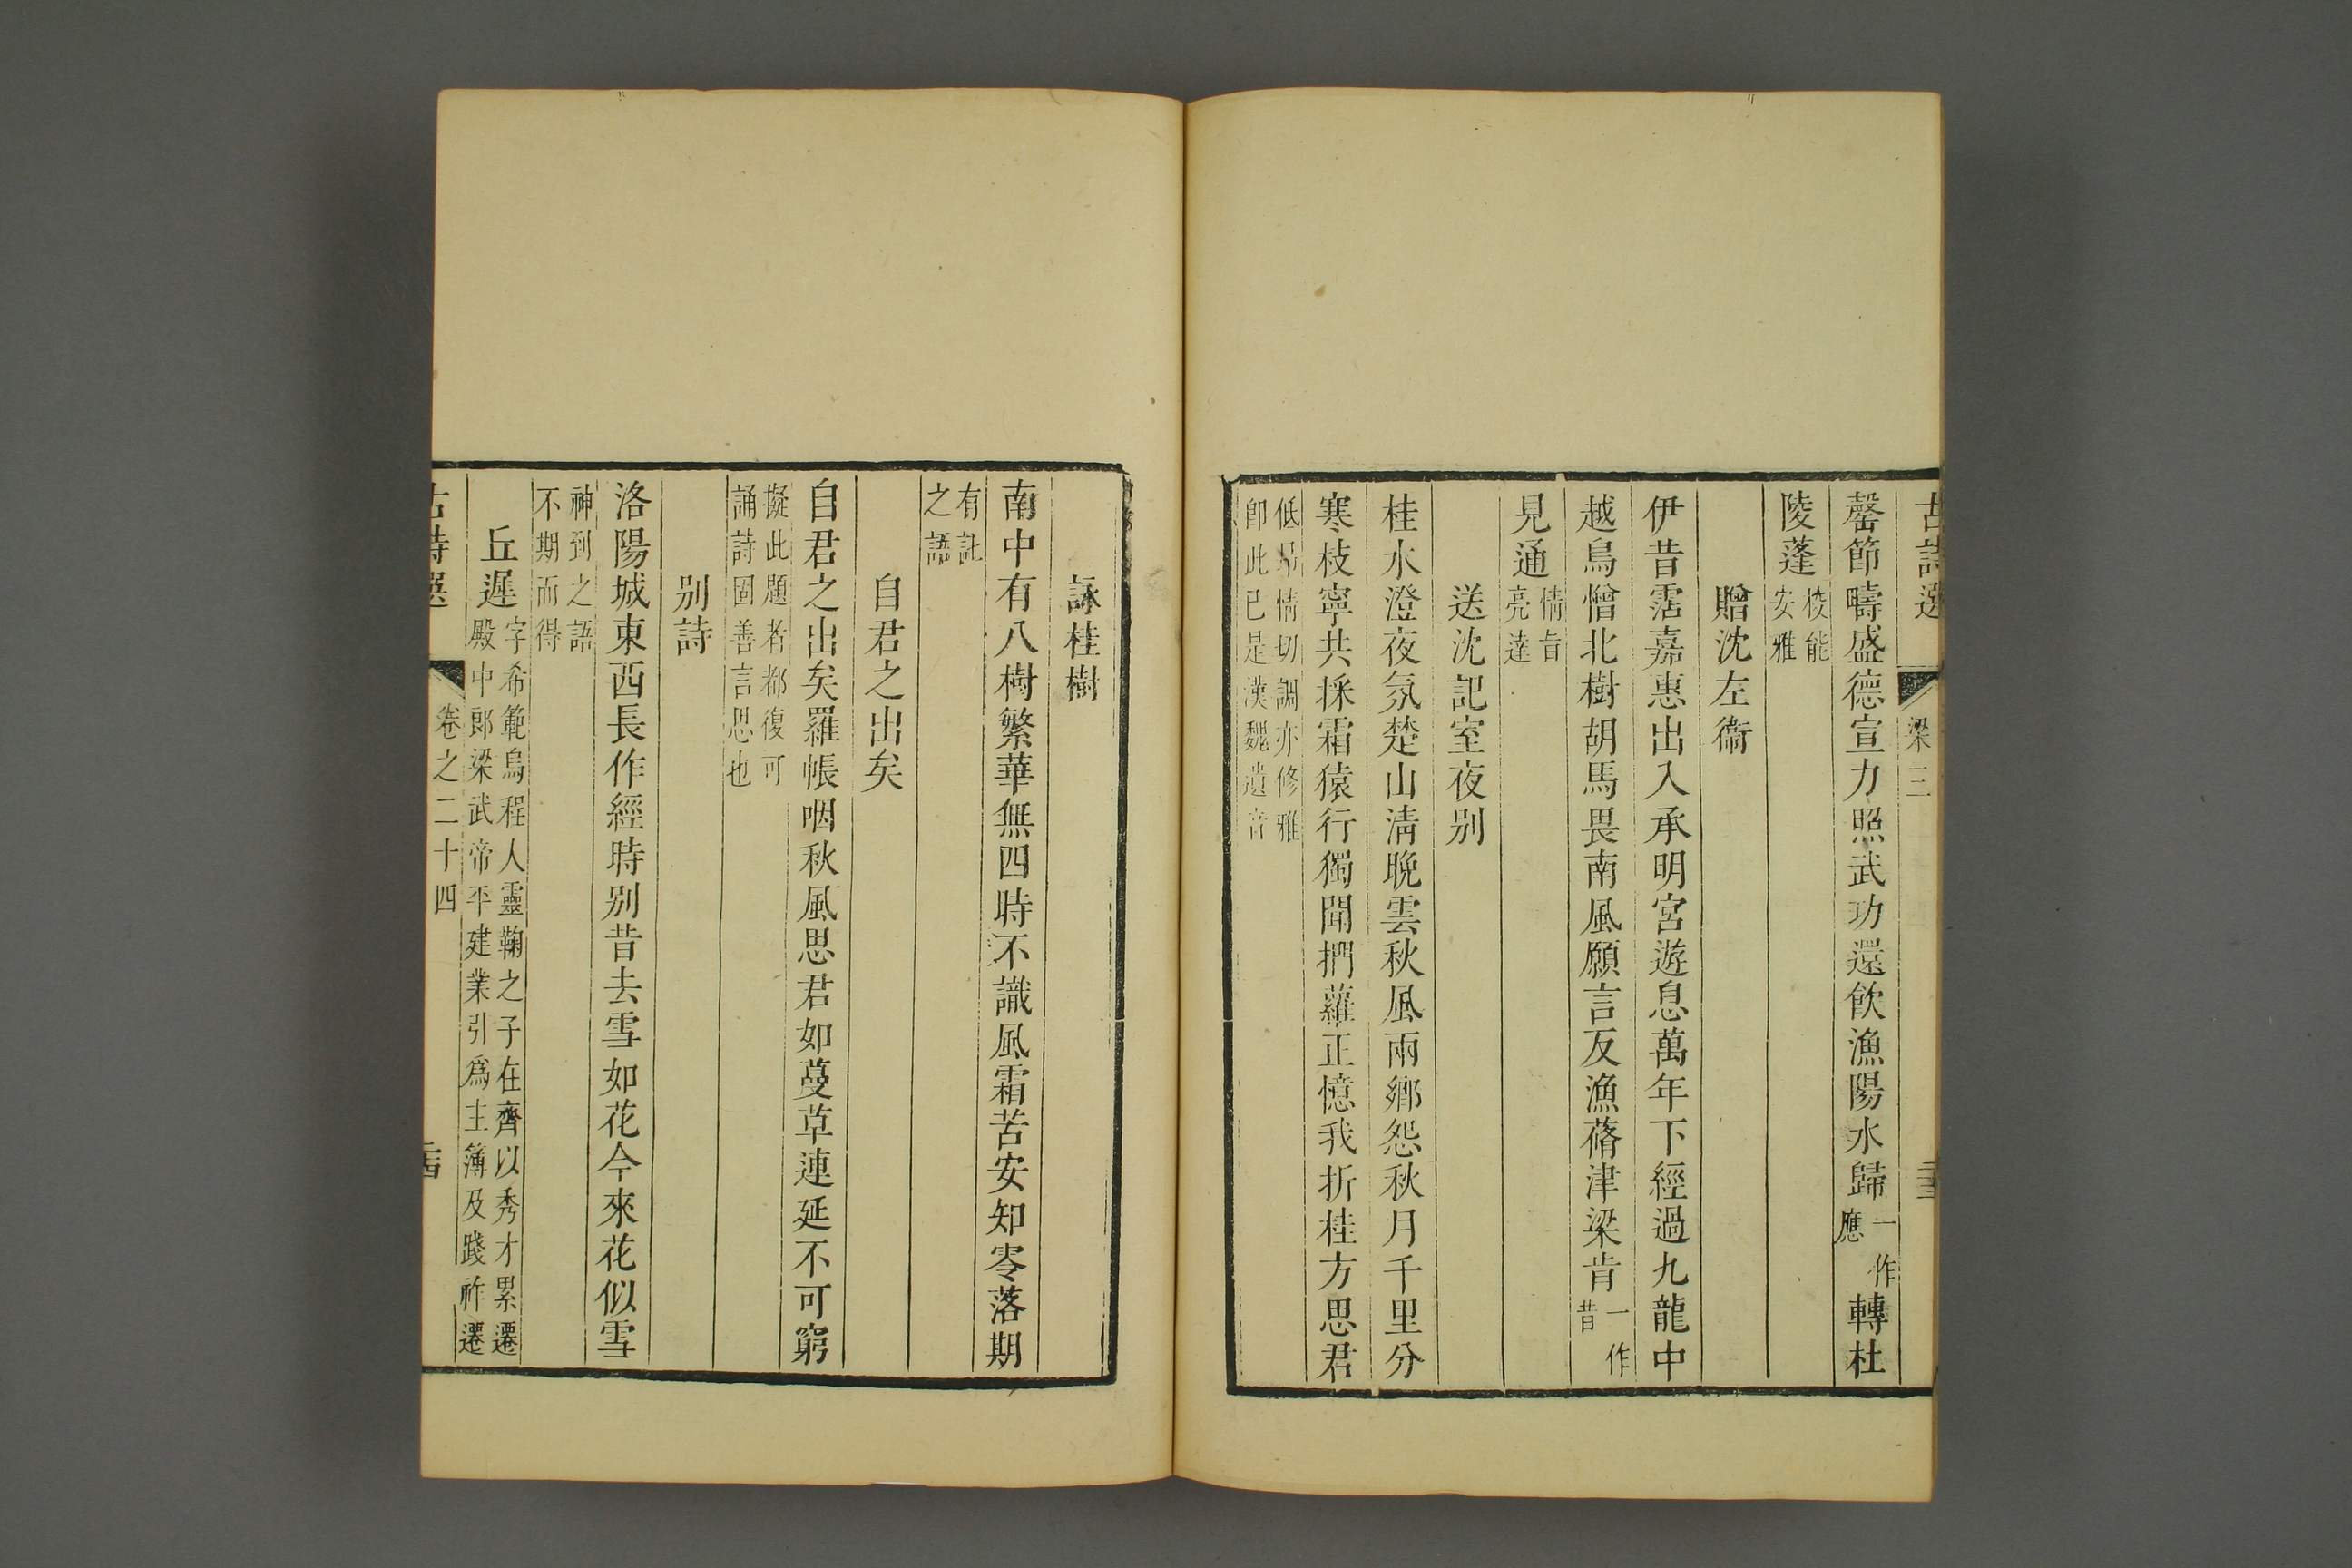 古詩選 梁三
罄節疇盛德宣力照武功還飲漁陽水歸一作應轉杜
陵蓬校能安雅
贈沈左衞
伊昔霑嘉惠出入承明宮遊息萬年下經過九龍中
越鳥憎北樹胡馬畏南風願言反漁蓨津梁肯一作昔
見通情旨亮達
送沈記室夜別
桂水澄夜氛楚山清曉雲秋風兩鄉怨秋月千里分
寒枝寧共採霜猿行獨聞捫蘿正憶我折桂方思君
低吊情切調亦修雅卽此已是漢魏遺音
詠桂樹
南中有八樹繁華無四時不識風霜苦安知零落期
有訿之語
自君之出矣
自君之出矣羅帳咽秋風思君如蔓草連延不可窮
擬此題者都復可誦詩固善言思也
別詩
洛陽城東西長作經時別昔去雪如花今來花似雪
神到之語不期而得
丘遲字希範烏程人靈鞠之子在齊以秀才累遷殿中郎梁武帝平建業引爲主簿及踐祚遷
古詩選 卷之二十四